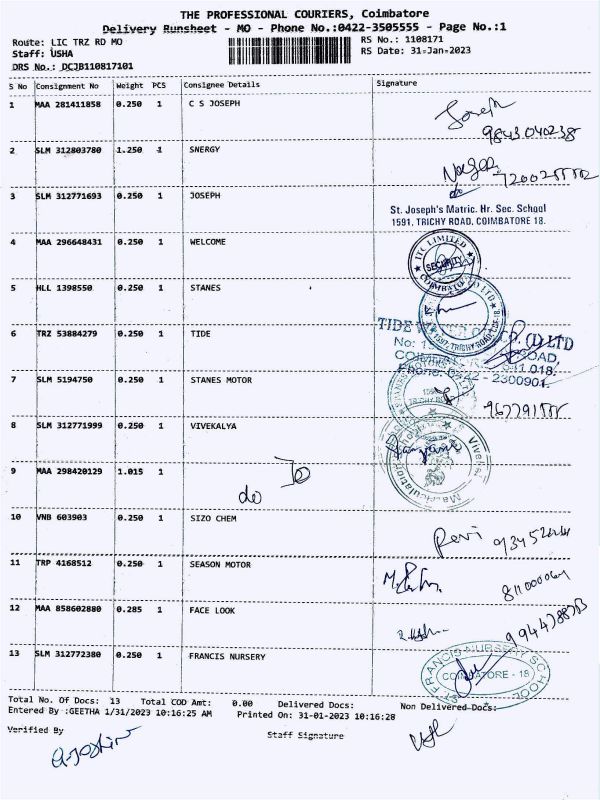 THE PROFESSIONAL COURIERS, Coimbatore
Delivery Runsheet - MO - Phone No.:0422-3505555 - Page No.:1
Route: LIC TRZ RD MO
RS No.: 1108171
Staff: USHA
RS Date: 31-Jan-2023
DRS No.: DCJB110817101
S No Consignment No Weight PCS Consignee Details Signature
1 MAA 281411858 0.250 1 C S JOSEPH
Joseph
9843040238
2 SLM 312803780 1.250 1 SNERGY
3 SLM 312771693 0.250 1 JOSEPH
do
St. Joseph's Matric. Hr. Sec. School
1591, TRICHY ROAD, COIMBATORE 18.
4 MAA 296648431 0.250 1 WELCOME
ITC LIMITED
SECURITY
COIMBATORE
5 HLL 1398550 0.250 1 STANES
LTD
TRICHY ROAD
6 TRZ 53884279 0.250 1 TIDE
TIDE WATER OIL CO. (I) LTD
No:
ROAD,
641 018.
Phone: 0422 - 2300901.
7 SLM 5194750 0.250 1 STANES MOTOR
8 SLM 312771999 0.250 1 VIVEKALYA
Matriculation
9 MAA 298420129 1.015 1
do
10 VNB 603903 0.250 1 SIZO CHEM
Ravi
11 TRP 4168512 0.250 1 SEASON MOTOR
12 MAA 858602880 0.285 1 FACE LOOK
13 SLM 312772380 0.250 1 FRANCIS NURSERY
ST. FRANCIS NURSERY SCHOOL
COIMBATORE - 18
Total No. Of Docs: 13 Total COD Amt: 0.00 Delivered Docs: Non Delivered Docs:
Entered By :GEETHA 1/31/2023 10:16:25 AM Printed On: 31-01-2023 10:16:28
Verified By
Staff Signature